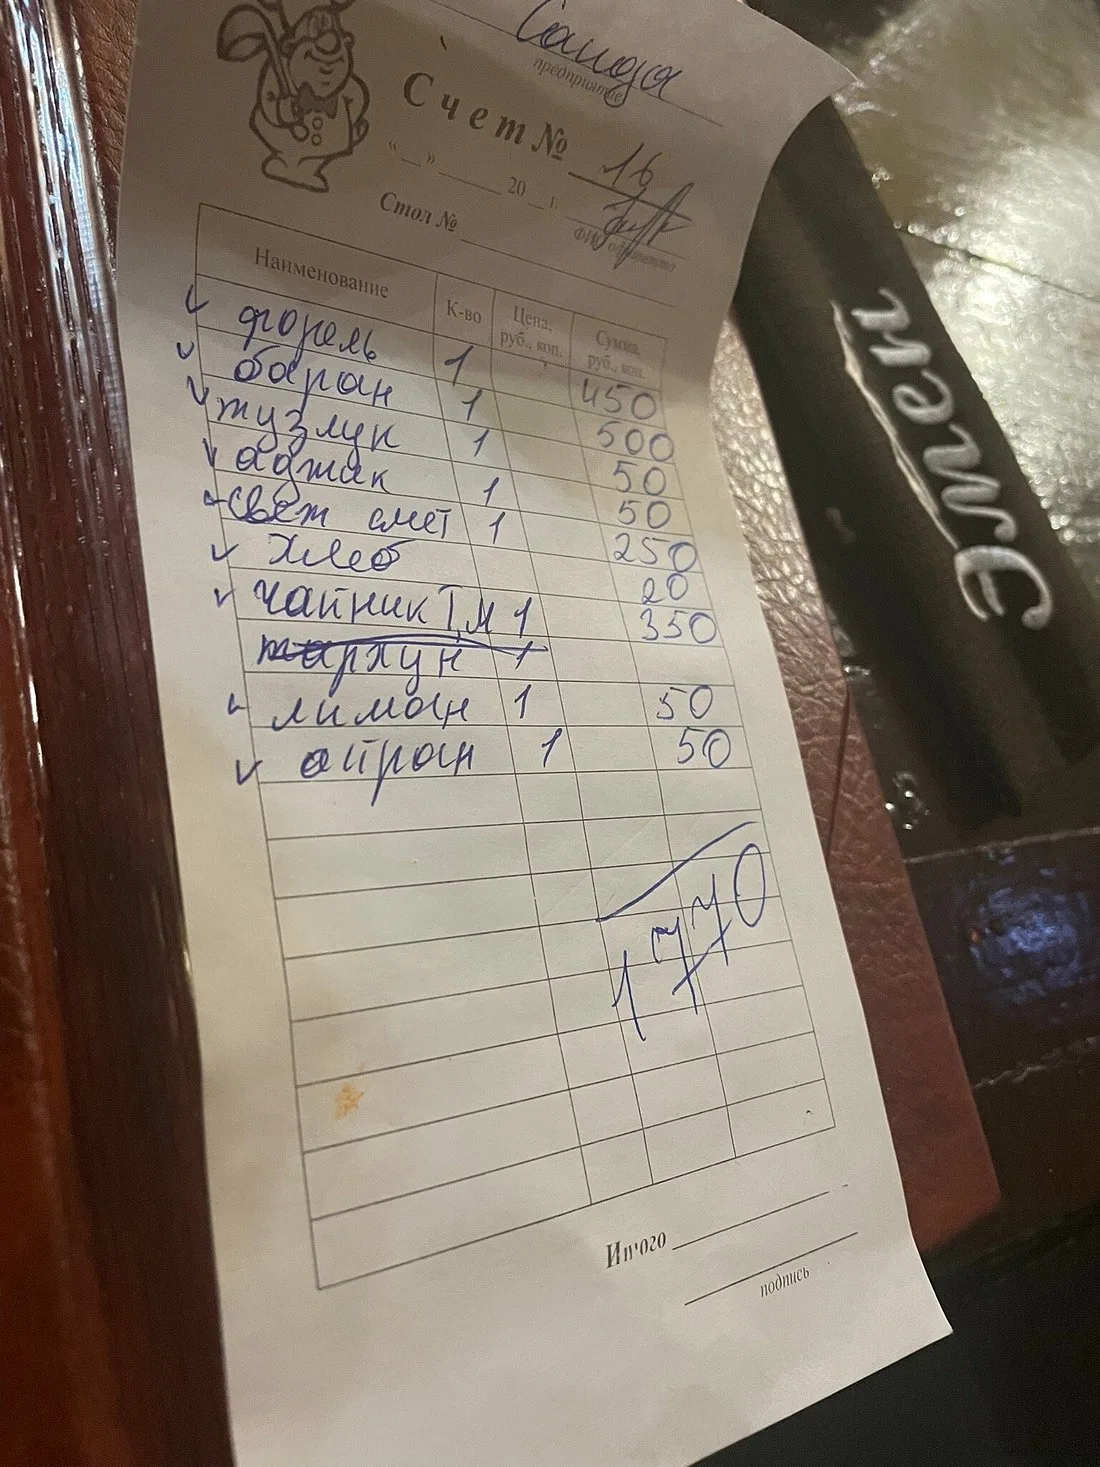 Саида
предприятие
Счет № 16
" " 20 г.
Стол №
Наименование К-во Цена, руб., коп. Сумма, руб., коп.
форель 1 450
баран 1 500
тузлук 1 50
аджик 1 50
свеж смет 1 250
Хлеб 20
Чайник Т,М 1 350
тархун 1
лимон 1 50
айран 1 50
1770
Итого
подпись